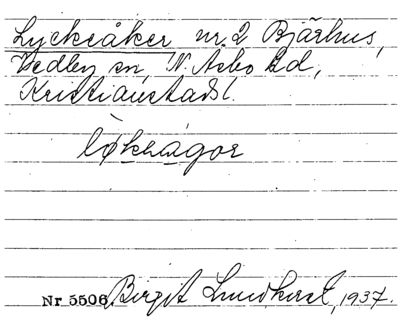 Lyckeåker nr. 2 Bjärhus,
Vedby sn, N. Åsbo hd,
Kristianstads l.
løkrågor
Nr 5506. Birgit Lundkvist, 1937.